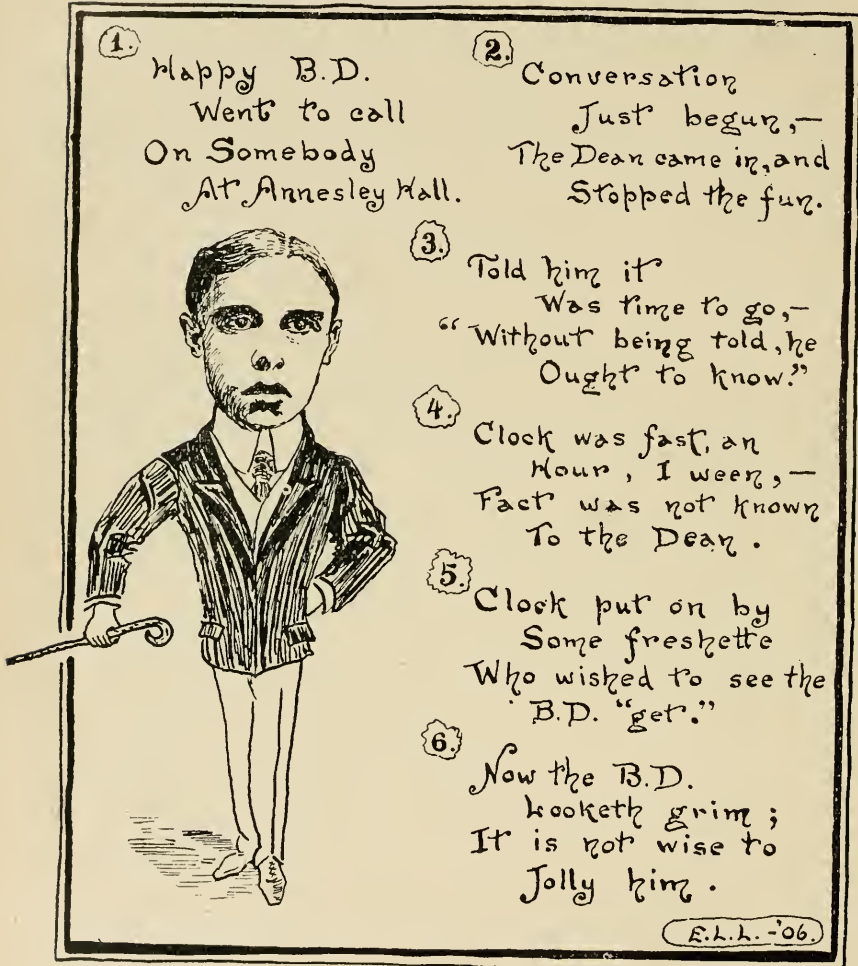 1.
Happy B.D.
Went to call
On Somebody
At Annesley Hall.
2.
Conversation
Just begun,—
The Dean came in, and
Stopped the fun.
3.
Told him it
Was time to go,—
“Without being told, he
Ought to know.”
4.
Clock was fast, an
Hour, I ween,—
Fact was not known
To the Dean.
5.
Clock put on by
Some freshette
Who wished to see the
B.D. “get.”
6.
Now the B.D.
Looketh grim;
It is not wise to
Jolly him.
E.L.L.-'06.